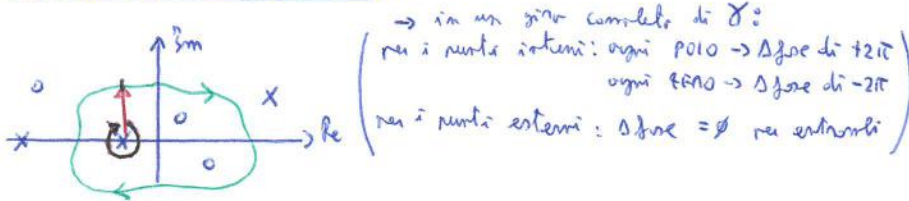 → in un giro completo di γ:
Im
per i punti interni: ogni POLO → Δfase di +2π
ogni ZERO → Δfase di -2π
Re
per i punti esterni: Δfase = ø per entrambi